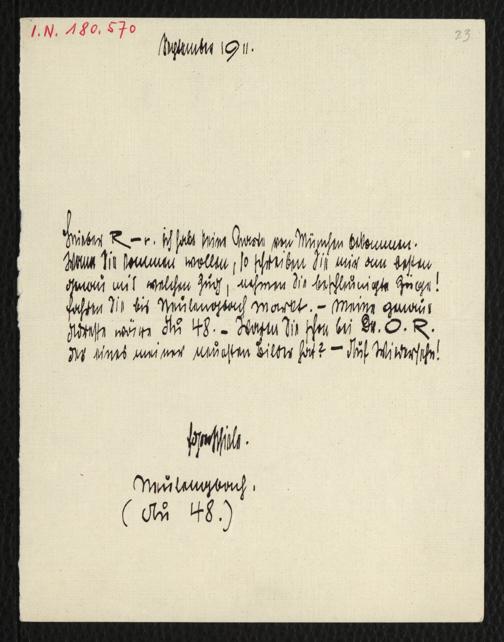 I.N. 180.570
23
September 1911.
Lieber R–r. ich habe keine Karte von München bekommen.
Wenn Sie kommen wollen, so schreiben Sie mir am besten
genau mit welchen Zug, nehmen Sie beschleunigte Züge!
fahren Sie bis Neulengbach Markt. – Meine genaue
Adresse wäre Au 48. – Waren Sie schon bei Dr. O. R.
der eines meiner neuesten Bilder hat? – Auf Wiedersehn!
Egon Schiele.
Neulengbach.
(Au 48.)